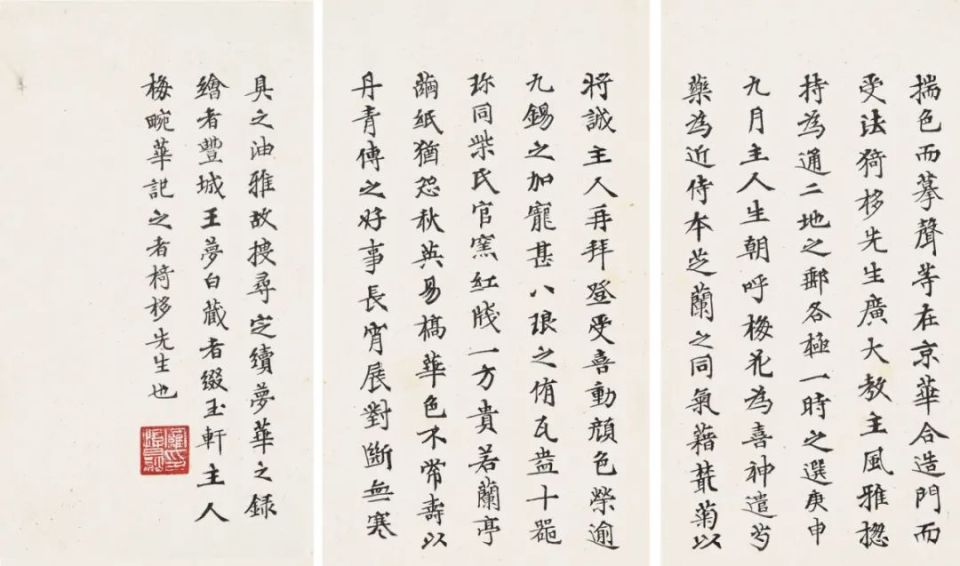 揣色而摹聲等在京華合造門而
受法猗栘先生廣大教主風雅揔
持為通二地之郵各極一時之選庚申
九月主人生朝呼梅花為喜神遣芍
藥為近侍本芝蘭之同氣藉叢菊以
將誠主人再拜登受喜動顏色榮逾
九錫之加寵甚八琅之侑瓦盎十器
珎同柴氏官窯紅牋一方貴若蘭亭
繭紙猶怨秋英易槁華色不常壽以
丹青傳之好事長宵展對斷無寒
具之油雅故搜尋定續夢華之録
繪者豐城王夢白藏者綴玉軒主人
梅畹華記之者猗栘先生也